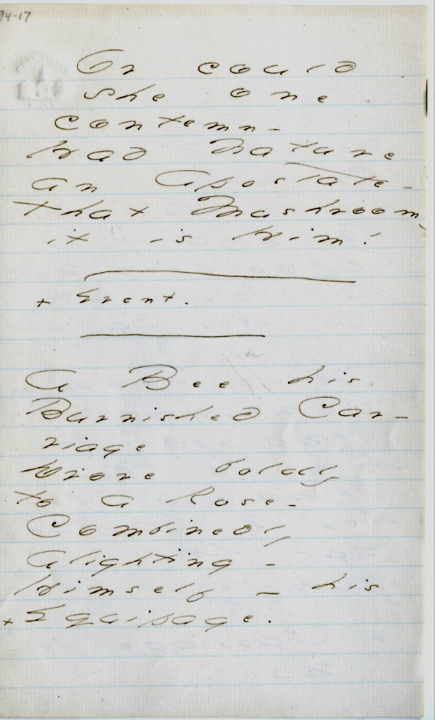 94-17
Or could
she one
contemn -
Had Nature
an Apostate -
That Mushroom,
it is Him!
+ Front.
A Bee his
Burnished Car-
riage
Drove boldly
to a Rose -
Combinedly
alighting -
Himself - his
+ Equipage.